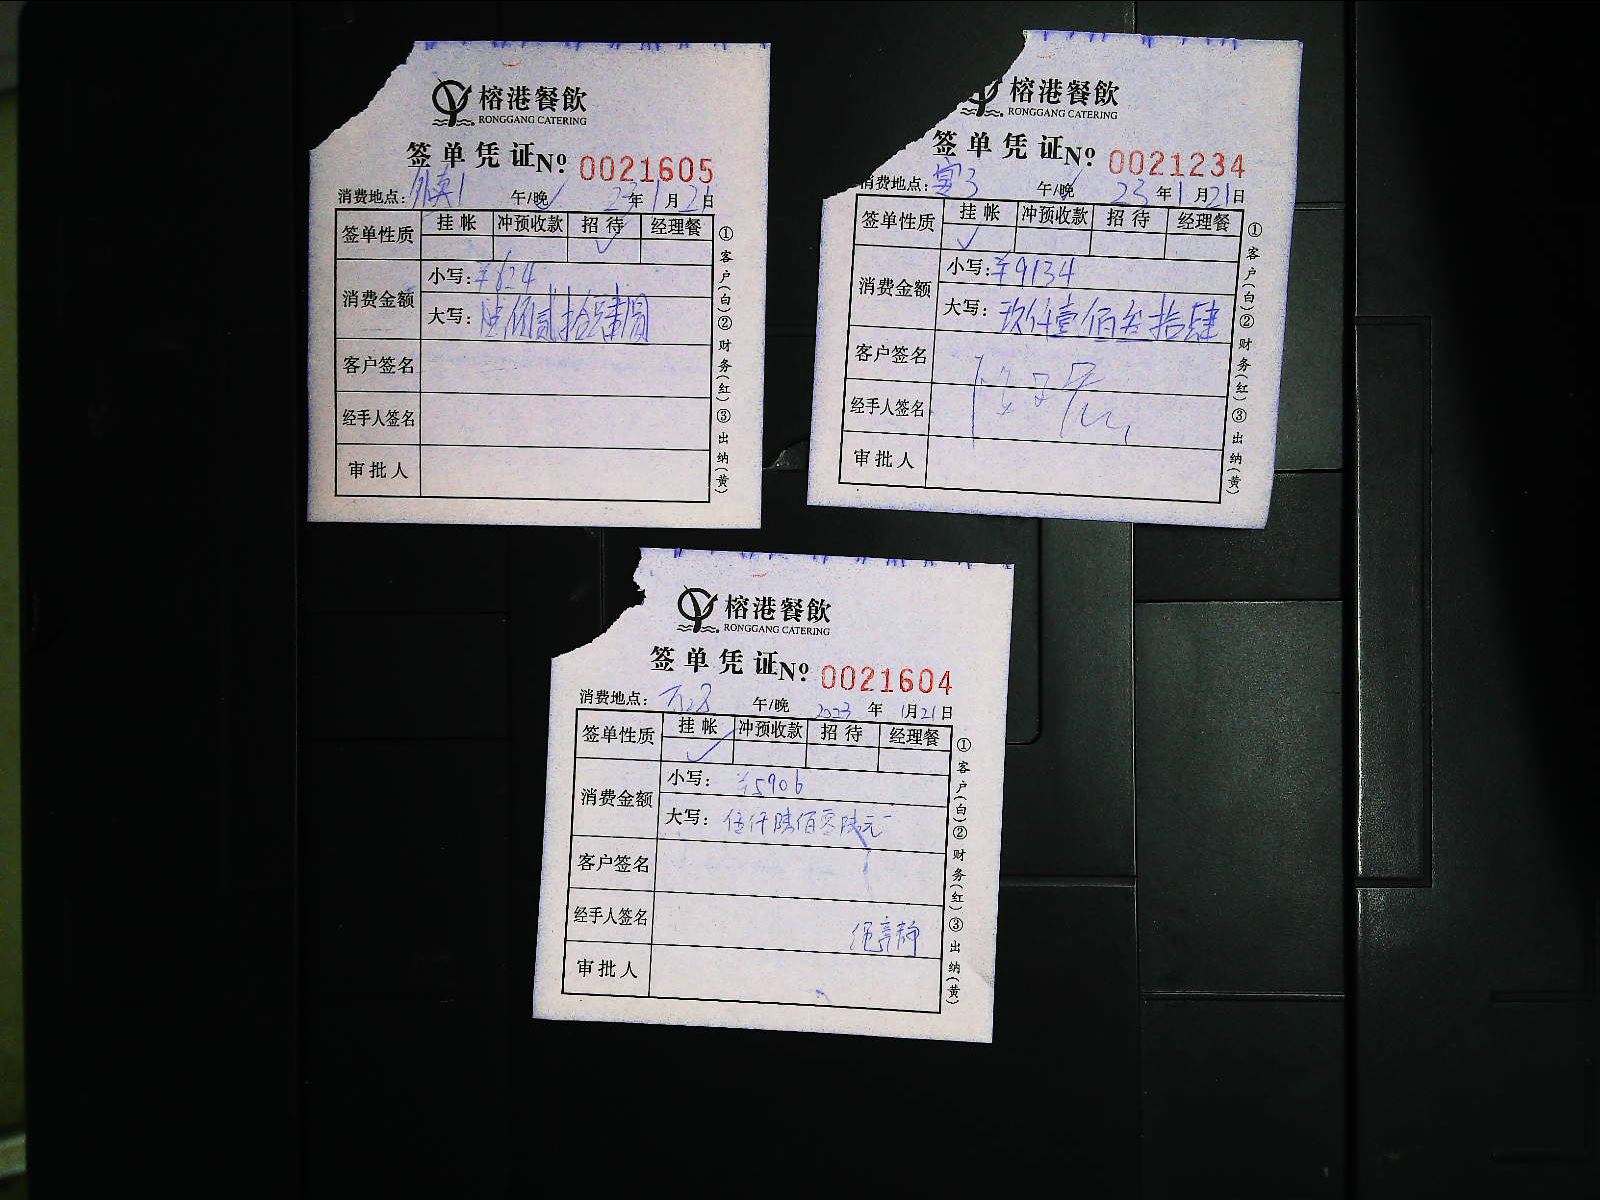 榕港餐飲
RONGGANG CATERING
签单凭证 Nº 0021605
消费地点：外卖1 午/晚 23年1月21日
签单性质 挂帐 冲预收款 招待 经理餐
✓
消费金额 小写：¥624
大写：陆佰贰拾肆圆
客户签名
经手人签名
审批人
①客户(白)②财务(红)③出纳(黄)
榕港餐飲
RONGGANG CATERING
签单凭证 Nº 0021234
消费地点：宴3 午/晚 23年1月21日
签单性质 挂帐 冲预收款 招待 经理餐
✓
消费金额 小写：¥9134
大写：玖仟壹佰叁拾肆
客户签名
经手人签名
审批人
①客户(白)②财务(红)③出纳(黄)
榕港餐飲
RONGGANG CATERING
签单凭证 Nº 0021604
消费地点： 午/晚 2023年1月21日
签单性质 挂帐 冲预收款 招待 经理餐
✓
消费金额 小写：¥5906
大写：伍仟陆佰零陆元
客户签名
经手人签名
审批人
①客户(白)②财务(红)③出纳(黄)